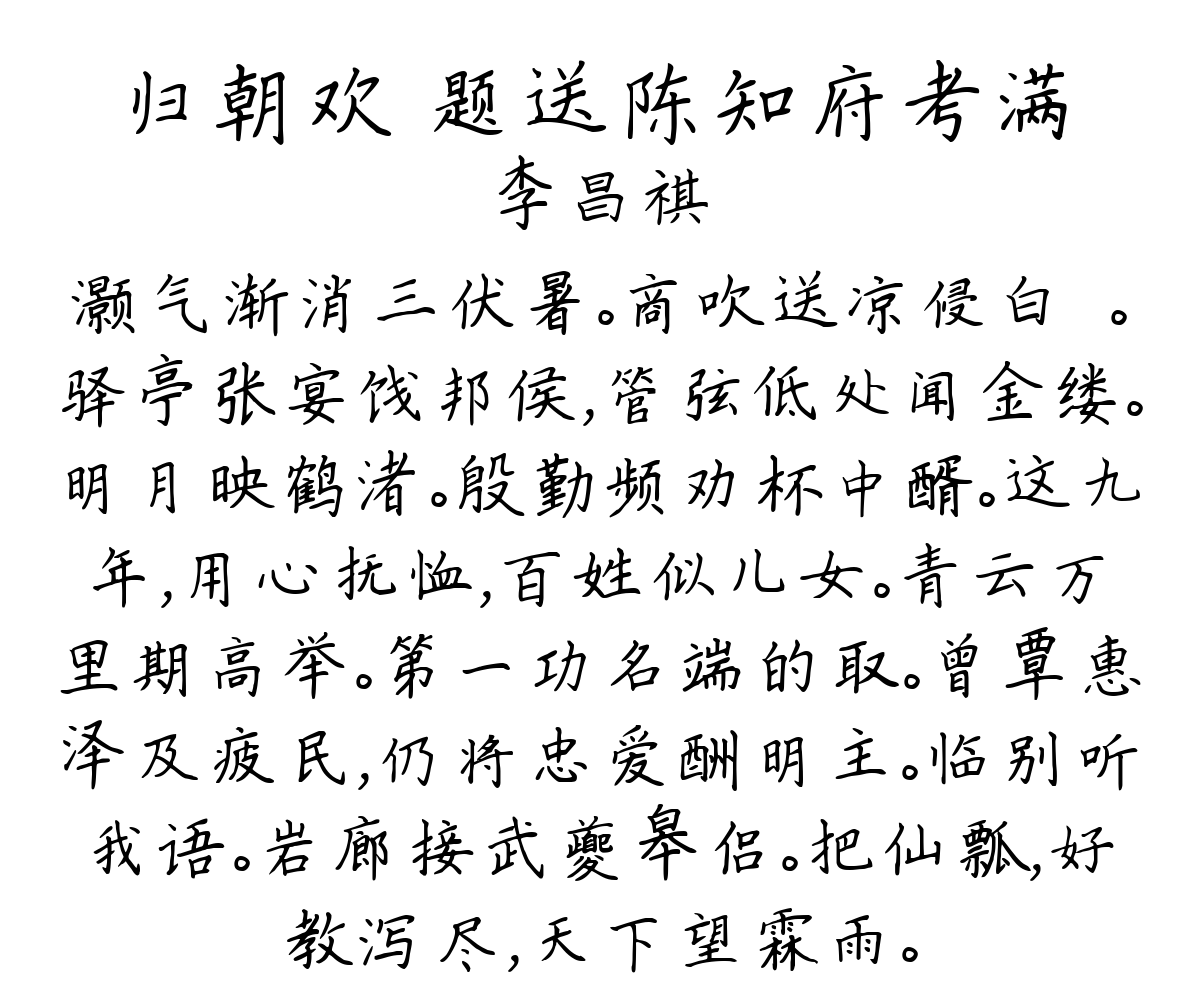 归朝欢 题送陈知府考满
李昌祺
灏气渐消三伏暑。商吹送凉侵白 。
驿亭张宴饯邦侯,管弦低处闻金缕。
明月映鹤渚。殷勤频劝杯中醑。这九
年,用心抚恤,百姓似儿女。青云万
里期高举。第一功名端的取。曾覃惠
泽及疲民,仍将忠爱酬明主。临别听
我语。岩廊接武夔皋侣。把仙瓢,好
教泻尽,天下望霖雨。